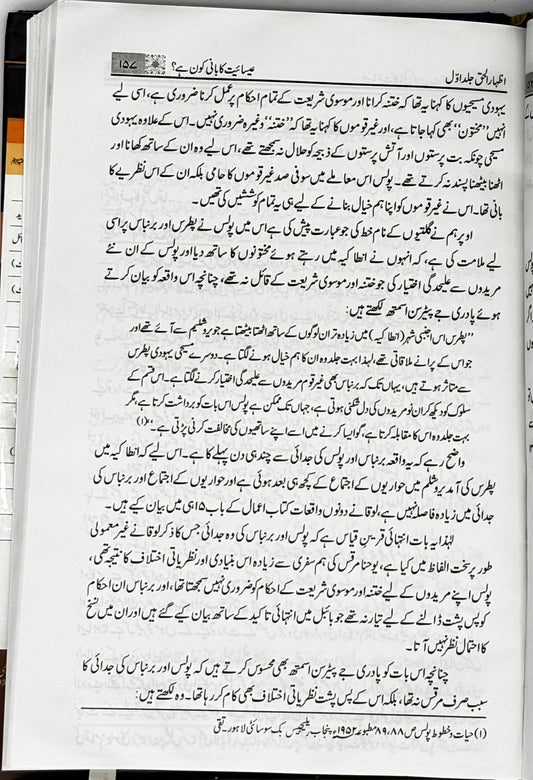 اظہار الحق جلد اوّل
عیسائیت کا بانی کون ہے؟
۱۵۷
یہودی مسیحیوں کا کہنا یہ تھا کہ ختنہ کرانا اور موسوی شریعت کے تمام احکام پر عمل کرنا ضروری ہے، اسی لیے
انہیں ”مختون“ بھی کہا جاتا ہے، اور غیر قوموں کا کہنا یہ تھا کہ ”ختنہ“ وغیرہ ضروری نہیں۔ اس کے علاوہ یہودی
مسیحی چونکہ بت پرستوں اور آتش پرستوں کے ذبیحہ کو حلال نہ سمجھتے تھے، اس لیے وہ ان کے ساتھ کھانا اور
اٹھنا بیٹھنا پسند نہ کرتے تھے۔ پولس اس معاملے میں سو فی صد غیر قوموں کا حامی بلکہ ان کے اس نظریے کا
بانی تھا۔ اس نے غیر قوموں کو اپنا ہم خیال بنانے کے لیے ہی یہ تمام کوششیں کی تھیں۔
اوپر ہم نے گلتیوں کے نام خط کی جو عبارت پیش کی ہے اس میں پولس نے پطرس اور برنباس پر اسی
لیے ملامت کی ہے، کہ انہوں نے انطاکیہ میں رہتے ہوئے مختونوں کا ساتھ دیا اور پولس کے ان نئے
مریدوں سے علیحدگی اختیار کی جو ختنہ اور موسوی شریعت کے قائل نہ تھے، چنانچہ اس واقعہ کو بیان کرتے
ہوئے پادری جے پیٹرسن اسمتھ لکھتے ہیں:
”پطرس اس اجنبی شہر (انطاکیہ) میں زیادہ تر ان لوگوں کے ساتھ اٹھتا بیٹھتا ہے جو یروشلیم سے آئے تھے اور
جو اس کے پرانے ملاقاتی تھے، لہٰذا بہت جلد وہ ان کا ہم خیال ہونے لگتا ہے۔ دوسرے مسیحی یہودی پطرس
سے متاثر ہوتے ہیں، یہاں تک کہ برنباس بھی غیر قوم مریدوں سے علیحدگی اختیار کرنے لگتا ہے۔ اس قسم کے
سلوک کو دیکھ کر ان نو مریدوں کی دل شکنی ہوتی ہے، جہاں تک ممکن ہے پولس اس بات کو برداشت کرتا ہے، مگر
بہت جلد وہ اس کا مقابلہ کرتا ہے، گو ایسا کرنے میں اسے اپنے ساتھیوں کی مخالفت کرنی پڑتی ہے۔“ (۱)
واضح رہے کہ یہ واقعہ برنباس اور پولس کی جدائی سے چند ہی دن پہلے کا ہے۔ اس لیے کہ انطاکیہ میں
پطرس کی آمد یروشلم میں حواریوں کے اجتماع کے کچھ ہی بعد ہوئی ہے اور حواریوں کے اجتماع اور برنباس کی
جدائی میں زیادہ فاصلہ نہیں ہے، لوقا نے دونوں واقعات کتاب اعمال کے باب ۱۵ ہی میں بیان کیے ہیں۔
لہٰذا یہ بات انتہائی قرین قیاس ہے کہ پولس اور برنباس کی وہ جدائی جس کا ذکر لوقا نے غیر معمولی
طور پر سخت الفاظ میں کیا ہے، یوحنا مرقس کی ہم سفری سے زیادہ اس بنیادی اور نظریاتی اختلاف کا نتیجہ تھی،
پولس اپنے مریدوں کے لیے ختنہ اور موسوی شریعت کے احکام کو ضروری نہیں سمجھتا تھا، اور برنباس ان احکام
کو پس پشت ڈالنے کے لیے تیار نہ تھے جو بائبل میں انتہائی تاکید کے ساتھ بیان کیے گئے ہیں اور ان میں نسخ
کا احتمال نظر نہیں آتا۔
چنانچہ اس بات کو پادری جے پیٹرسن اسمتھ بھی محسوس کرتے ہیں کہ پولس اور برنباس کی جدائی کا
سبب صرف مرقس نہ تھا، بلکہ اس کے پس پشت نظریاتی اختلاف بھی کام کر رہا تھا۔ وہ لکھتے ہیں:
(۱) حیات و خطوط پولس ص ۸۸، ۸۹ مطبوعہ ۱۹۵۲ء پنجاب ریلیجیس بک سوسائٹی لاہور۔ تقی